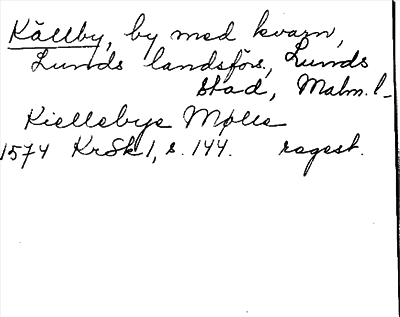 Källby, by med kvarn,
Lunds landsförs., Lunds
stad, Malm. l.
Kiellebye Mølle
1574 KrSk 1, s. 144. regest.